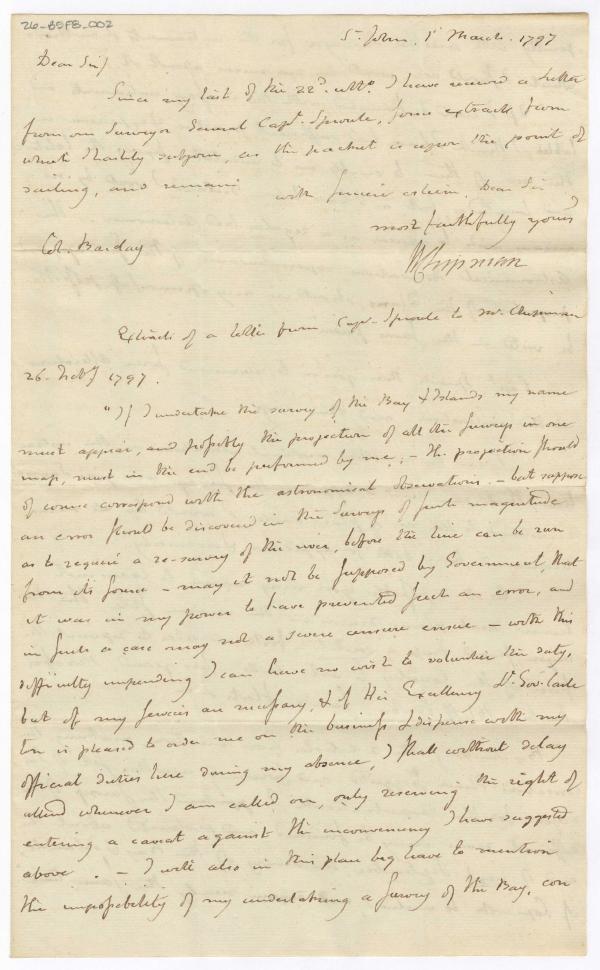 26-BSFB-002
St. John, 1st March. 1797
Dear Sir,
Since my last of the 22d. ulto. I have received a letter
from our Surveyor General Capt. Sproule, some extracts from
which I hastily subjoin, as the packet is upon the point of
sailing, and remain with sincere esteem, Dear Sir
most faithfully yours
Col. Barclay
W Chipman
Extracts of a letter from Capt. Sproule to Mr. Chipman
26. Feby 1797.
"If I undertake the survey of the Bay & Islands my name
must appear, and possibly the projection of all the surveys in one
map, must in the end be performed by me; – the projection should
of course correspond with the astronomical observations. – but suppose
an error should be discovered in the surveys of such magnitude
as to require a re-survey of the river, before the line can be run
from its source – may it not be supposed by Government, that
it was in my power to have prevented such an error, and
in such a case may not a severe censure ensue – with this
difficulty impending I can have no wish to volunteer the duty,
but if my services are necessary, & if His Excellency Lt. Gov. Carle
ton is pleased to order me on the business & dispense with my
official duties here during my absence, I shall without delay
attend whenever I am called on, only reserving the right of
entering a caveat against the inconveniency I have suggested
above. – I will also in this place beg leave to mention
the impossibility of my undertaking a survey of the Bay, con